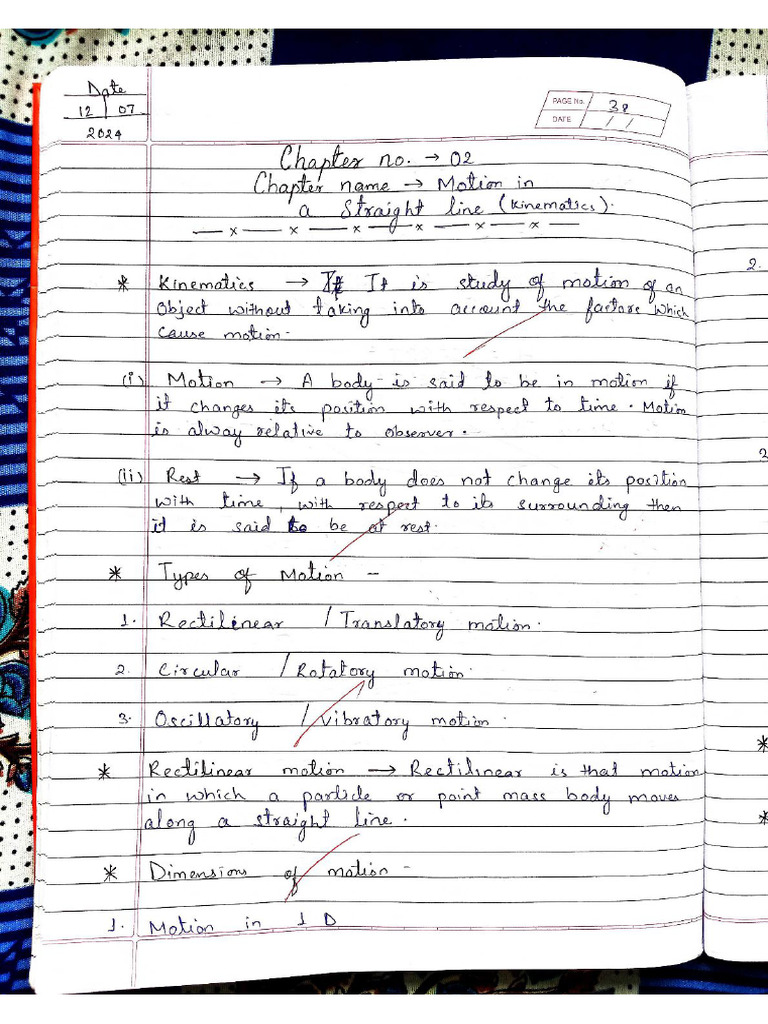 Date
12 07
2024
PAGE No. 38
DATE / /
Chapter no. → 02
Chapter name → Motion in
a Straight line (Kinematics).
— x — x — x — x — x — x —
* Kinematics → It is study of motion of an
object without taking into account the factors which
cause motion.
(i) Motion → A body is said to be in motion if
it changes its position with respect to time. Motion
is alway relative to observer.
(ii) Rest → If a body does not change its position
with time, with respect to its surrounding then
it is said to be at rest.
* Types of Motion -
1. Rectilinear / Translatory motion.
2. Circular / Rotatory motion.
3. Oscillatory / vibratory motion.
* Rectilinear motion → Rectilinear is that motion
in which a particle or point mass body moves
along a straight line.
* Dimensions of motion -
1. Motion in 1 D
2.
2
*
*